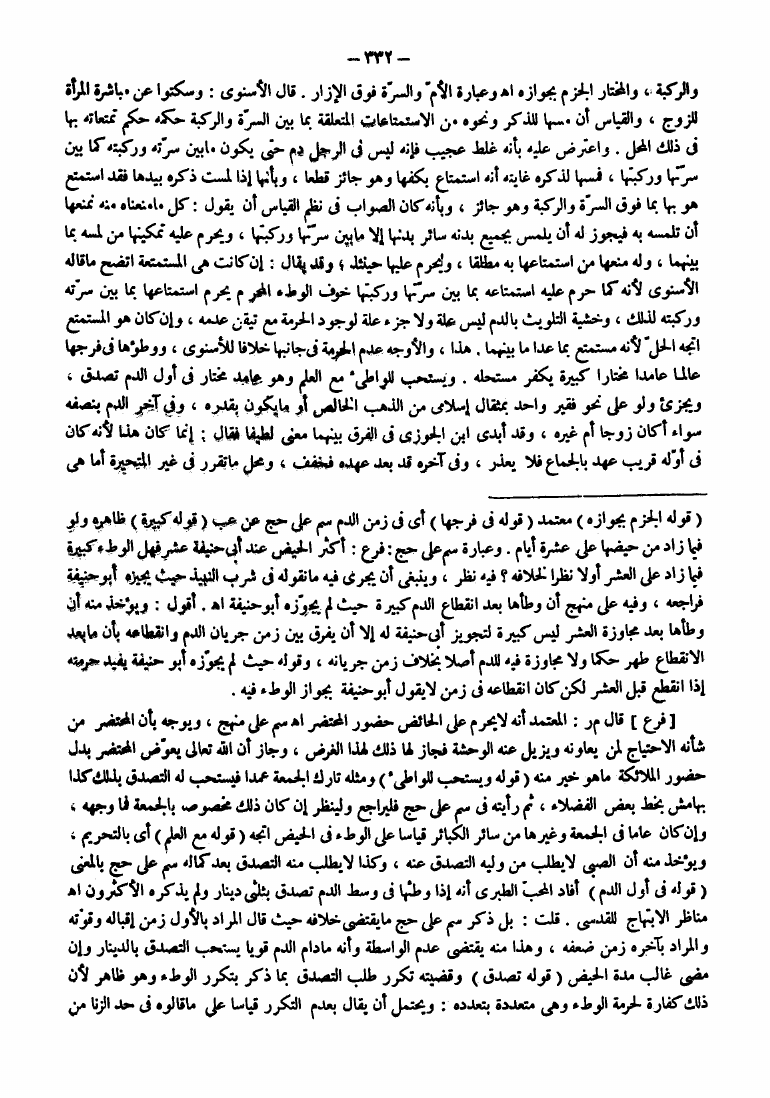 — ٣٣٢ —
والركبة ، والمختار الجزم بجوازه اه وعبارة الأم والسرّة فوق الإزار . قال الأسنوى : وسكتوا عن مباشرة المرأة
للزوج ، والقياس أن مسها للذكر ونحوه من الاستمتاعات المتعلقة بما بين السرّة والركبة حكمه حكم تمتعاته بها
فى ذلك المحل . واعترض عليه بأنه غلط عجيب فإنه ليس فى الرجل دم حتى يكون مابين سرّته وركبته كما بين
سرّتها وركبتها ، فمسها لذكره غايته أنه استمتاع بكفها وهو جائز قطعا ، وبأنها إذا لمست ذكره بيدها فقد استمتع
هو بها بما فوق السرّة والركبة وهو جائز ، وبأنه كان الصواب فى نظم القياس أن يقول : كل مامنعناه منه نمنعها
أن تلمسه به فيجوز له أن يلمس بجميع بدنه سائر بدنها إلا مابين سرّتها وركبتها ، ويحرم عليه تمكينها من لمسه بما
بينهما ، وله منعها من استمتاعها به مطلقا ، ويحرم عليها حينئذ ؛ وقد يقال : إن كانت هى المستمتعة اتضح ماقاله
الأسنوى لأنه كما حرم عليه استمتاعه بما بين سرّتها وركبتها خوف الوطء المحرم يحرم استمتاعها بما بين سرّته
وركبته لذلك ، وخشية التلويث بالدم ليس علة ولا جزء علة لوجود الحرمة مع تيقن عدمه ، وإن كان هو المستمتع
اتجه الحلّ لأنه مستمتع بما عدا ما بينهما . هذا ، والأوجه عدم الحرمة فى جانبها خلافا للأسنوى ، ووطؤها فى فرجها
عالما عامدا مختارا كبيرة يكفر مستحله . ويستحب للواطئ مع العلم وهو عامد مختار فى أول الدم تصدق ،
ويجزئ ولو على نحو فقير واحد بمثقال إسلامى من الذهب الخالص أو مايكون بقدره ، وفى آخر الدم بنصفه
سواء أكان زوجا أم غيره ، وقد أبدى ابن الجوزى فى الفرق بينهما معنى لطيفا فقال : إنما كان هذا لأنه كان
فى أوّله قريب عهد بالجماع فلا يعذر ، وفى آخره قد بعد عهده فخفف ، ومحل ماتقرر فى غير المتحيرة أما هى
( قوله الجزم بجوازه ) معتمد ( قوله فى فرجها ) أى فى زمن الدم سم على حج عن عب ( قوله كبيرة ) ظاهره ولو
فيما زاد من حيضها على عشرة أيام . وعبارة سم على حج : فرع : أكثر الحيض عند أبى حنيفة عشر فهل الوطء كبيرة
فيما زاد على العشر أولا نظرا لخلافه ؟ فيه نظر ، وينبغى أن يجرى فيه مانقوله فى شرب النبيذ حيث يجيزه أبو حنيفة
فراجعه ، وفيه على منهج أن وطأها بعد انقطاع الدم كبيرة حيث لم يجوّزه أبو حنيفة اه . أقول : ويؤخذ منه أن
وطأها بعد مجاوزة العشر ليس كبيرة لتجويز أبى حنيفة له إلا أن يفرق بين زمن جريان الدم وانقطاعه بأن مابعد
الانقطاع طهر حكما ولا مجاوزة فيه للدم أصلا بخلاف زمن جريانه ، وقوله حيث لم يجوّزه أبو حنيفة يفيد حرمته
إذا انقطع قبل العشر لكن كان انقطاعه فى زمن لايقول أبو حنيفة بجواز الوطء فيه .
[ فرع ] قال مر : المعتمد أنه لايحرم على الحائض حضور المحتضر اه سم على منهج ، ويوجه بأن المحتضر من
شأنه الاحتياج لمن يعاونه ويزيل عنه الوحشة فجاز لها ذلك لهذا الغرض ، وجاز أن الله تعالى يعوّض المحتضر بدل
حضور الملائكة ماهو خير منه ( قوله ويستحب للواطئ ) ومثله تارك الجمعة عمدا فيستحب له التصدق بذلك كذا
بهامش بخط بعض الفضلاء ، ثم رأيته فى سم على حج فليراجع ولينظر إن كان ذلك مخصوصا بالجمعة فما وجهه ،
وإن كان عاما فى الجمعة وغيرها من سائر الكبائر قياسا على الوطء فى الحيض اتجه ( قوله مع العلم ) أى بالتحريم ،
ويؤخذ منه أن الصبى لايطلب من وليه التصدق عنه ، وكذا لايطلب منه التصدق بعد كماله سم على حج بالمعنى
( قوله فى أول الدم ) أفاد المحبّ الطبرى أنه إذا وطئها فى وسط الدم تصدق بثلثى دينار ولم يذكره الأكثرون اه
مناظر الابتهاج للقدسى . قلت : بل ذكر سم على حج مايقتضى خلافه حيث قال المراد بالأول زمن إقباله وقوّته
والمراد بآخره زمن ضعفه ، وهذا منه يقتضى عدم الواسطة وأنه مادام الدم قويا يستحب التصدق بالدينار وإن
مضى غالب مدة الحيض ( قوله تصدق ) وقضيته تكرر طلب التصدق بما ذكر بتكرر الوطء وهو ظاهر لأن
ذلك كفارة لحرمة الوطء وهى متعددة بتعدده : ويحتمل أن يقال بعدم التكرر قياسا على ماقالوه فى حد الزنا من